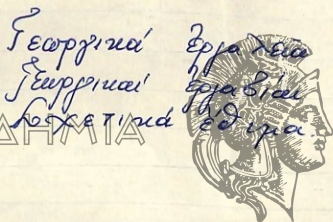 Γεωργικά Ἐργαλεῖα
Γεωργικαί ἐργασίαι
Σχετικά ἔθιμα.
ΔΗΜΙΑ